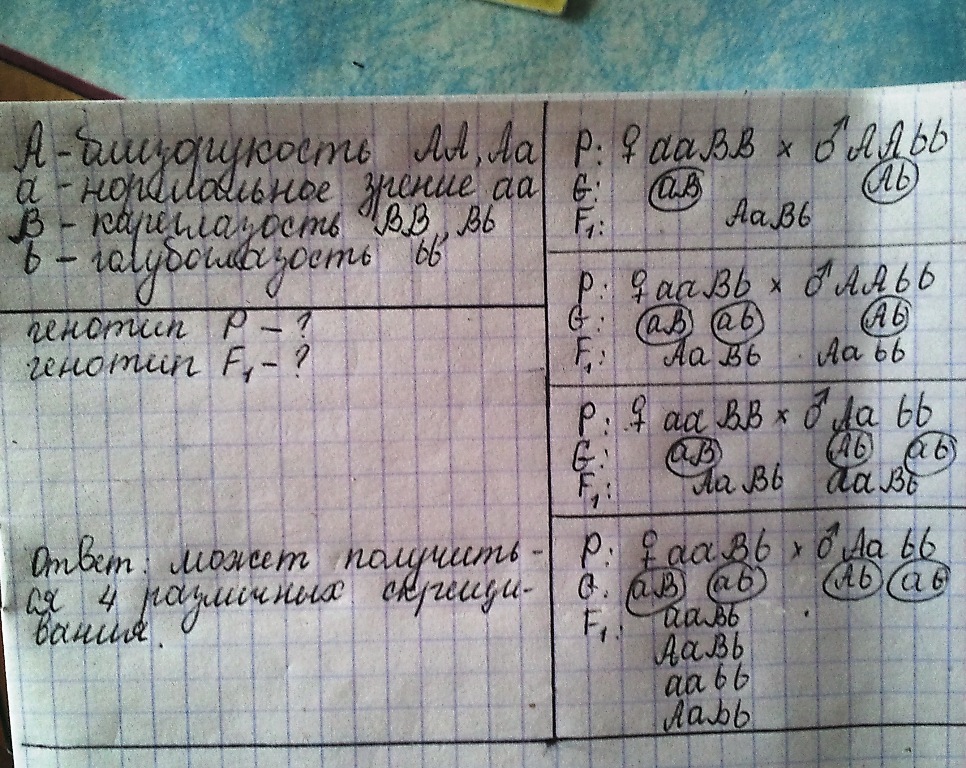 A - близорукость AA, Aa
a - нормальное зрение aa
B - кареглазость BB, Bb
b - голубоглазость bb
генотип P - ?
генотип F₁ - ?
Ответ: может получить-
ся 4 различных скрещи-
вания.
P: ♀ aaBB × ♂ AAbb
G: aB Ab
F₁: AaBb
P: ♀ aaBb × ♂ AAbb
G: aB ab Ab
F₁: AaBb Aabb
P: ♀ aaBB × ♂ Aabb
G: aB Ab ab
F₁: AaBb aaBb
P: ♀ aaBb × ♂ Aabb
G: aB ab Ab ab
F₁: aaBb
AaBb
aabb
Aabb